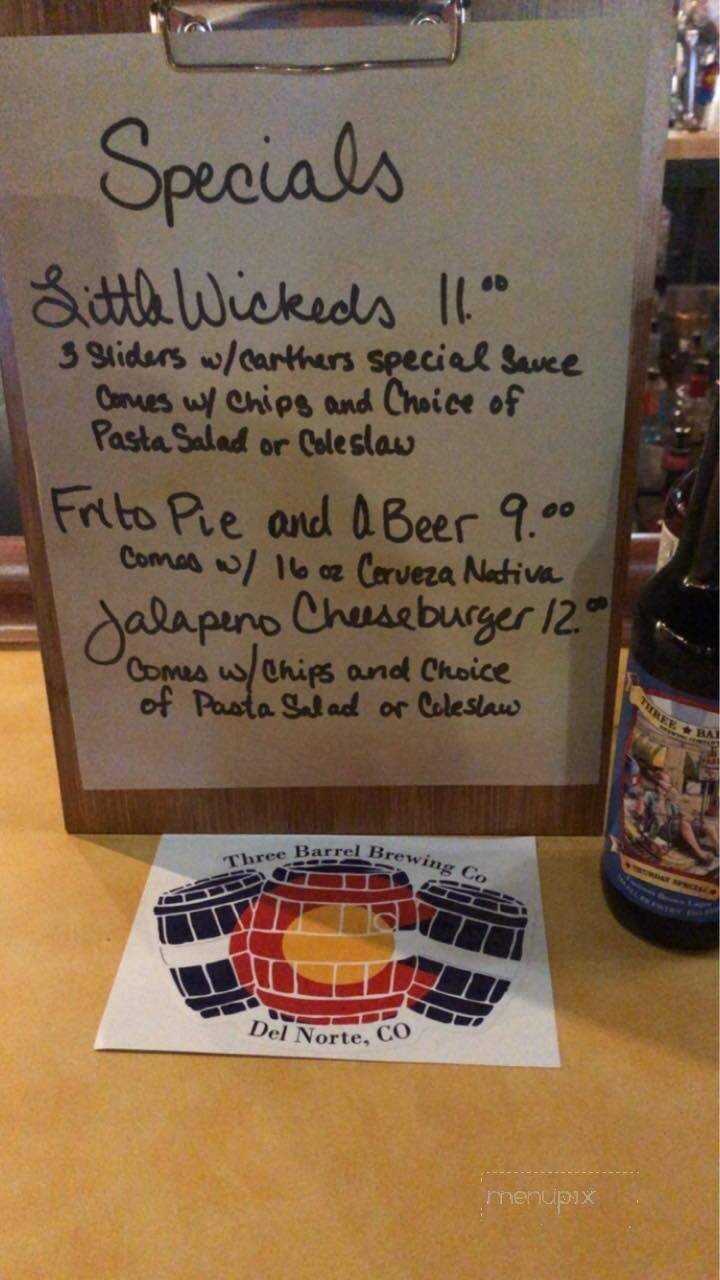 Specials
Little Wickeds 11.00
3 Sliders w/carthers special Sauce
Comes w/ chips and Choice of
Pasta Salad or Coleslaw
Frito Pie and A Beer 9.00
Comes w/ 16 oz Cerveza Nativa
Jalapeno Cheeseburger 12.00
Comes w/ Chips and Choice
of Pasta Salad or Coleslaw
THREE ★ BA
THURSDAY SPECIAL
Three Barrel Brewing Co
Del Norte, CO
menupix